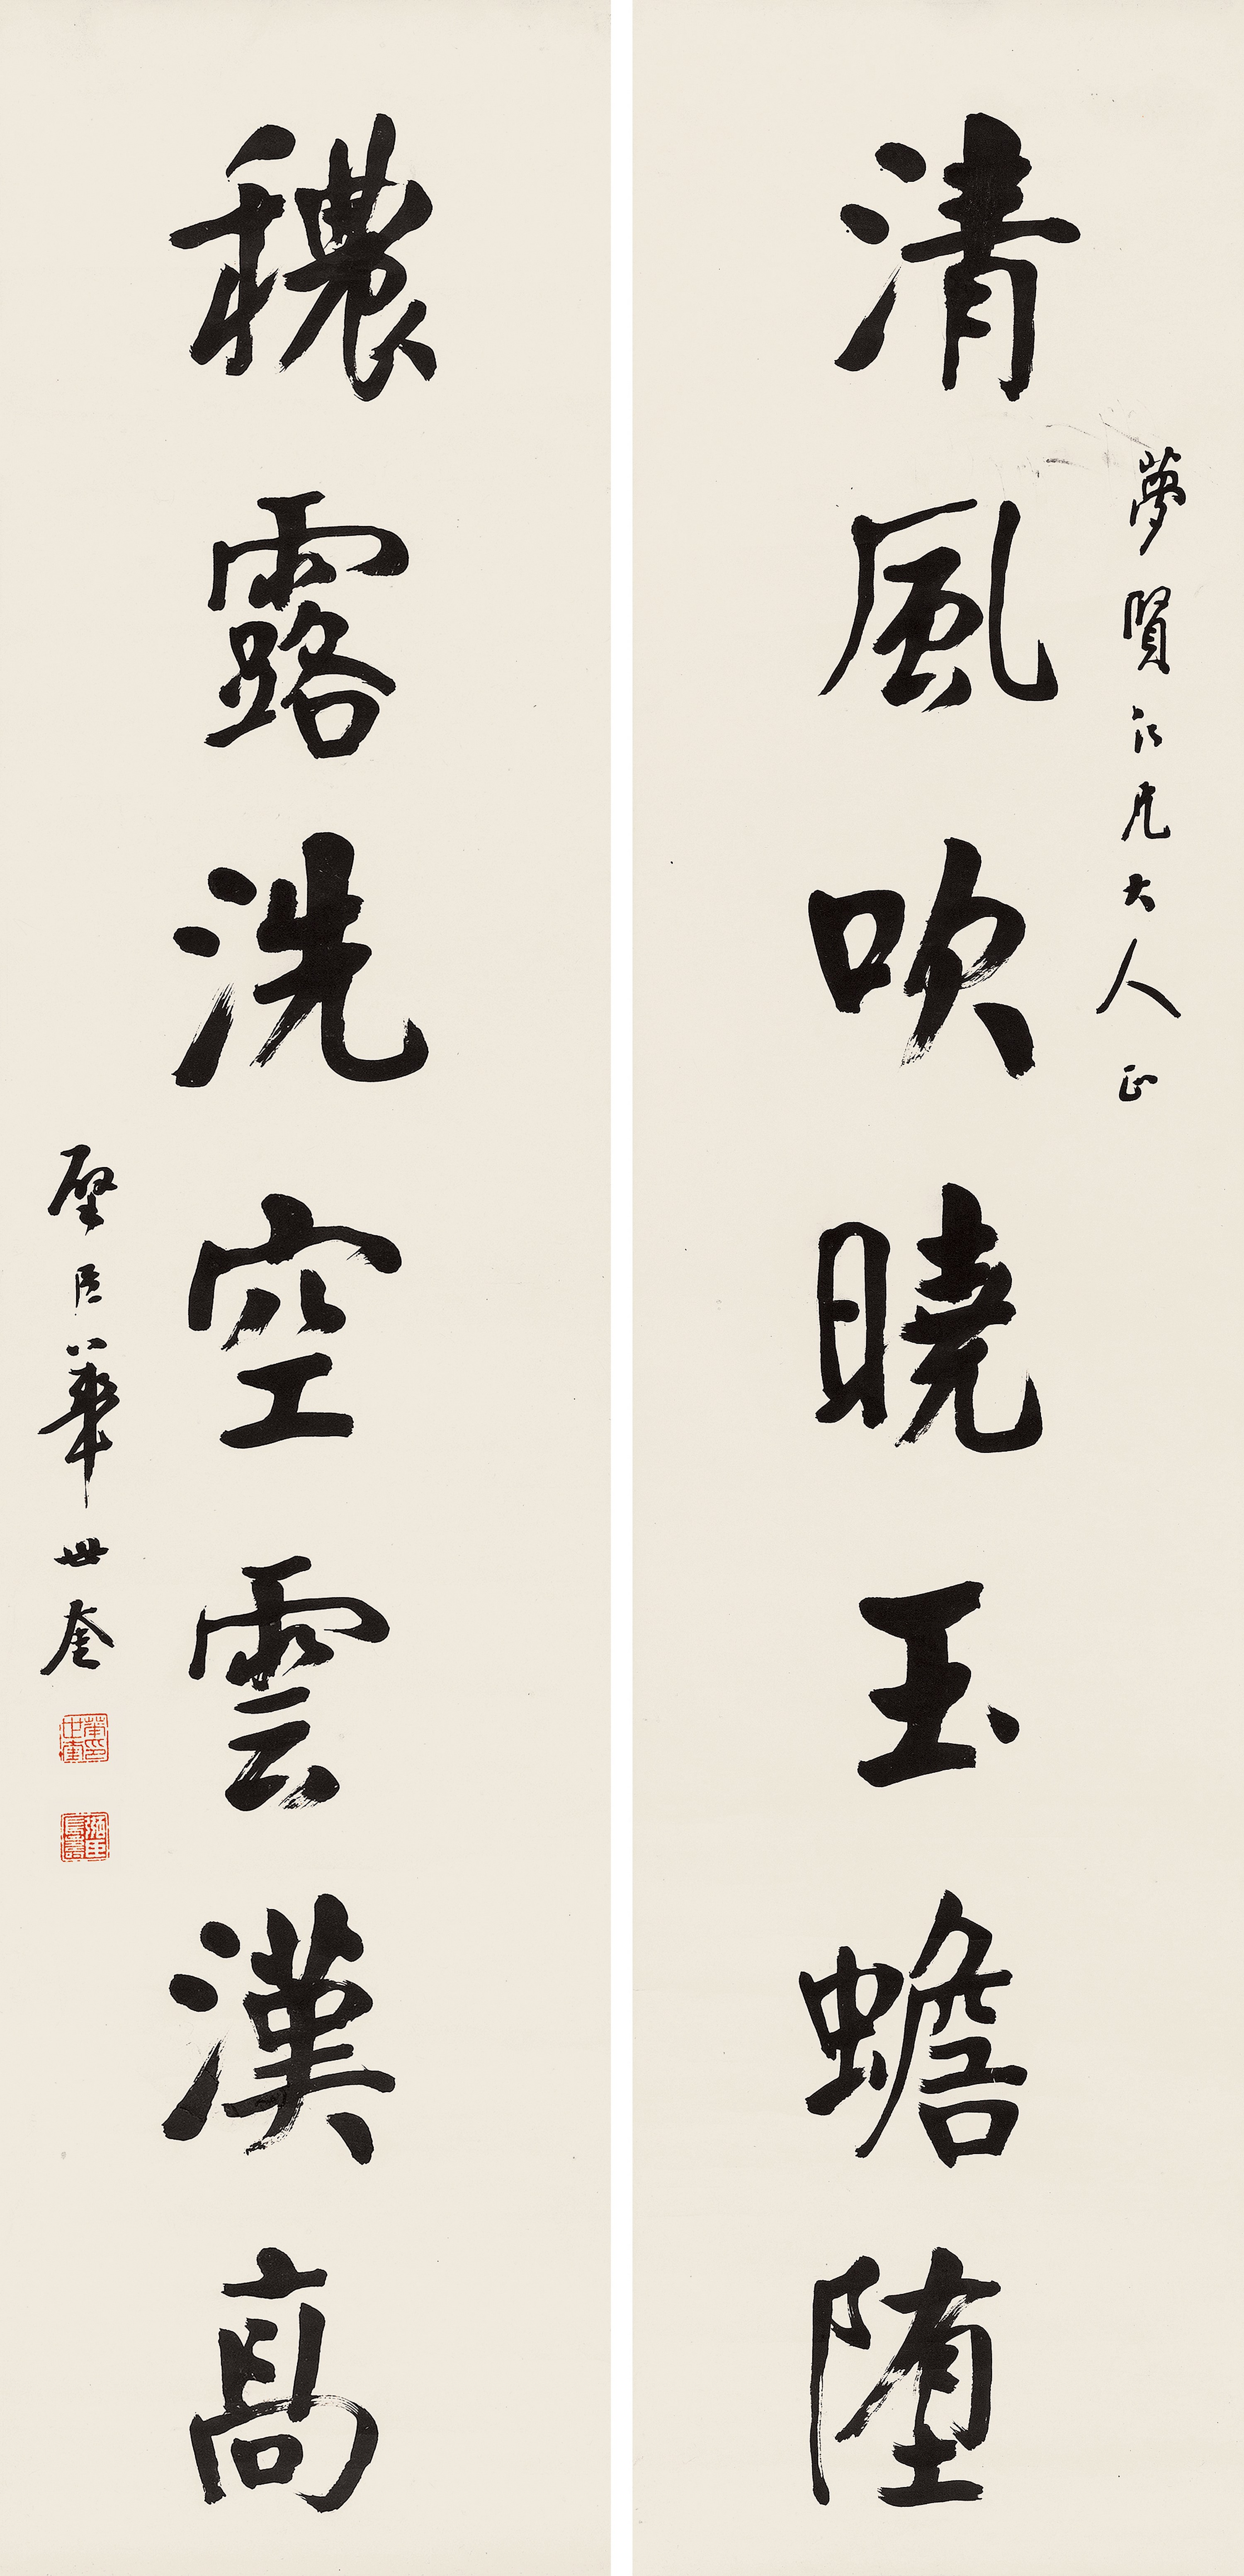 夢賢仁兄大人正
清風吹曉玉蟾墮
穠露洗空雲漢高
璧臣華世奎
華世奎印